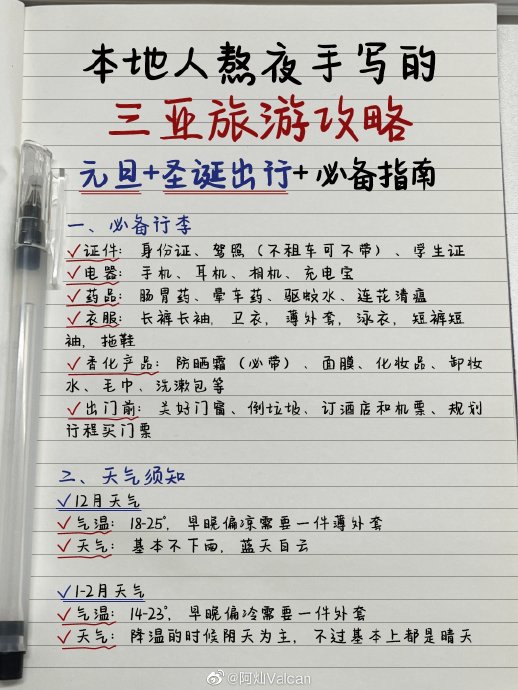 本地人熬夜手写的
三亚旅游攻略
元旦+圣诞出行+必备指南
一、必备行李
✓证件：身份证、驾照（不租车可不带）、学生证
✓电器：手机、耳机、相机、充电宝
✓药品：肠胃药、晕车药、驱蚊水、连花清瘟
✓衣服：长裤长袖，卫衣，薄外套，泳衣，短裤短
袖，拖鞋
✓香化产品：防晒霜（必带）、面膜、化妆品、卸妆
水、毛巾、洗漱包等
✓出门前：关好门窗、倒垃圾、订酒店和机票、规划
行程买门票
二、天气须知
✓12月天气
✓气温：18-25°，早晚偏凉需要一件薄外套
✓天气：基本不下雨，蓝天白云
✓1-2月天气
✓气温：14-23°，早晚偏冷需要一件外套
✓天气：降温的时候阴天为主，不过基本上都是晴天
@阿灿Valcan